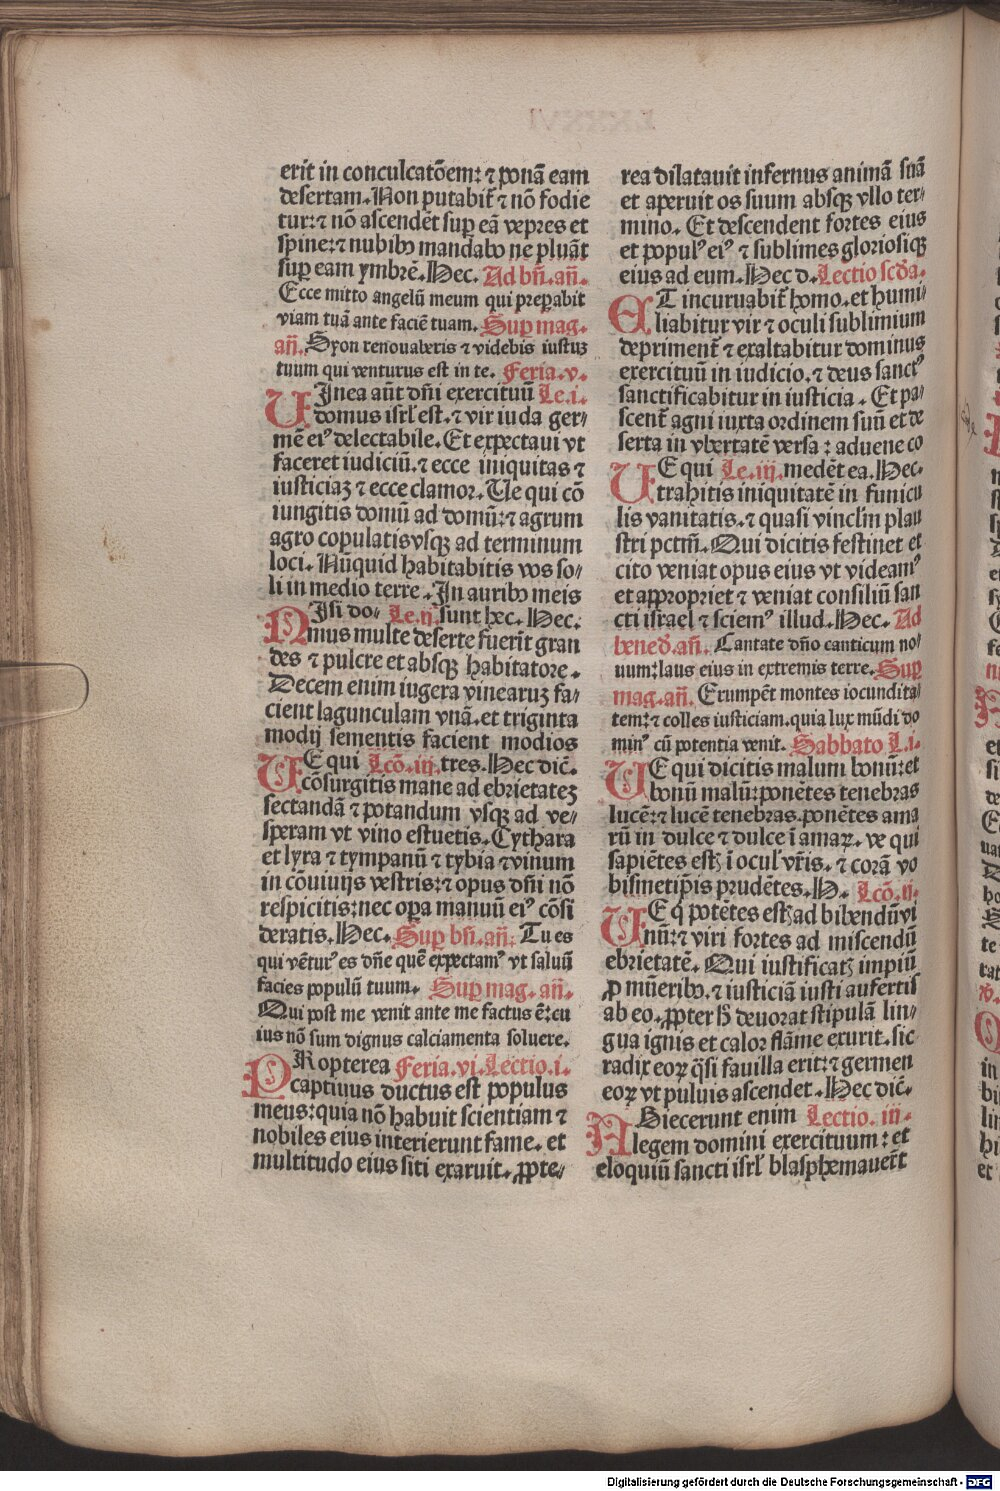 erit in conculcatōem: ⁊ ponā eam
desertam. Non putabit̄ ⁊ nō fodie
tur: ⁊ nō ascendēt suꝑ eā vepres et
spine: ⁊ nubibꝰ mandabo ne pluāt
suꝑ eam ymbrē. Hec. Ad bn̄. an̄.
Ecce mitto angelū meum qui preꝑabit
viam tuā ante faciē tuam. Suꝑ mag.
an̄. Syon renouaberis ⁊ videbis iustuꝫ
tuum qui venturus est in te. Feria. v.
UInea aūt dn̄i exercituū Le. i.
domus isrl̄ est. ⁊ vir iuda ger⸗
mē eiꝰ delectabile. Et expectaui vt
faceret iudiciū. ⁊ ecce iniquitas ⁊
iusticiaꝫ ⁊ ecce clamor. Ue qui cō
iungitis domū ad domū: ⁊ agrum
agro copulatis vsqꝫ ad terminum
loci. Nūquid habitabitis vos so⸗
li in medio terre. In auribꝰ meis
NIsi do⸗ Le. ij. sunt hec. Hec.
mus multe deserte fuerīt gran
des ⁊ pulcre et absqꝫ habitatore.
Decem enim iugera vinearuꝫ fa⸗
cient lagunculam vnā. et triginta
modij sementis facient modios
UE qui Lcō. iij. tres. Hec dic̄.
cōsurgitis mane ad ebrietateꝫ
sectandā ⁊ potandum vsqꝫ ad ve⸗
speram vt vino estuetis. Cythara
et lyra ⁊ tympanū ⁊ tybia ⁊ vinum
in cōuiuijs vestris: ⁊ opus dn̄i nō
respicitis: nec oꝑa manuū eiꝰ cōsi
deratis. Hec. Suꝑ bn̄. an̄. Tu es
qui vēturꝰ es dn̄e quē expectamꝰ vt saluū
facies populū tuum. Suꝑ mag. an̄.
Qui post me venit ante me factus ē: cu
ius nō sum dignus calciamenta soluere.
PRopterea Feria. vi. Lectio. i.
captiuus ductus est populus
meus: quia nō habuit scientiam ⁊
nobiles eius interierunt fame. et
multitudo eius siti exaruit. ꝓpte⸗
rea dilatauit infernus animā suā
et aperuit os suum absqꝫ vllo ter⸗
mino. Et descendent fortes eius
et populꝰ eiꝰ ⁊ sublimes gloriosiqꝫ
eius ad eum. Hec d. Lectio scd̄a.
ET incuruabit̄ homo. et humi⸗
liabitur vir ⁊ oculi sublimium
deprimenť ⁊ exaltabitur dominus
exercituū in iudicio. ⁊ deus sanctꝰ
sanctificabitur in iusticia. Et pa⸗
scenť agni iuxta ordinem suū et de
serta in vbertatē versa: aduene co
UE qui Le. iij. medēt ea. Hec.
trahitis iniquitatē in funicu
lis vanitatis. ⁊ quasi vincl̄m plau
stri pctm̄. Qui dicitis festinet et
cito veniat opus eius vt videamꝰ
et appropriet ⁊ veniat consiliū san
cti israel ⁊ sciemꝰ illud. Hec. Ad
bened̄. an̄. Cantate dn̄o canticum no⸗
uum: laus eius in extremis terre. Suꝑ
mag. an̄. Erumpēt montes iocundita⸗
tem: ⁊ colles iusticiam. quia lux mūdi do
minꝰ cū potentia venit. Sabbato L. i.
UE qui dicitis malum bonū: et
bonū malū: ponētes tenebras
lucē: ⁊ lucē tenebras. ponētes ama
rū in dulce ⁊ dulce ī amaꝝ. ve qui
sapiētes estꝫ ī oculꝰ vr̄is. ⁊ corā vo
bismetip̄is prudētes. H. Lcō. ii.
UE q̄ potētes estꝫ ad bibendū vi
nū: ⁊ viri fortes ad miscendū
ebrietatē. Qui iustificatꝫ impiū
ꝓ mūeribꝰ. ⁊ iusticiā iusti aufertis
ab eo. ꝓpter h̄ deuorat stipulā lin⸗
gua ignis et calor flāme exurit. sic
radix eoꝝ q̄si fauilla erit: ⁊ germen
eoꝝ vt puluis ascendet. Hec dic̄.
ABiecerunt enim Lectio. iii.
legem domini exercituum: et
eloquiū sancti isrl̄ blasphemauer̄t
Digitalisierung gefördert durch die Deutsche Forschungsgemeinschaft - DFG